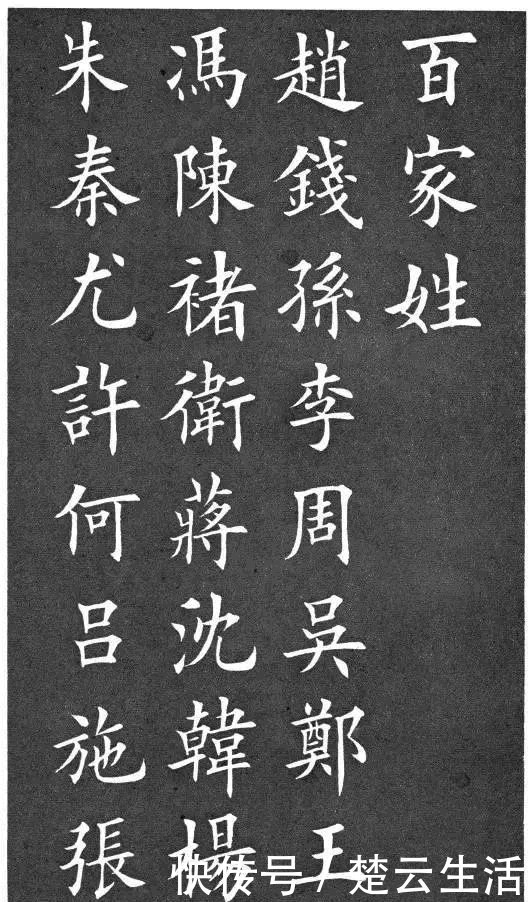 百家姓
趙錢孫李周吳鄭王
馮陳褚衛蔣沈韓楊
朱秦尤許何呂施張
快传号 / 楚云生活